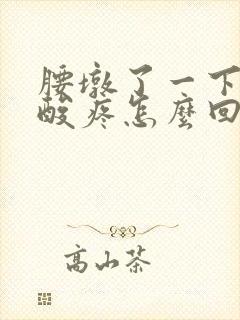 腰墩了一下
酸疼怎麼回
高山茶